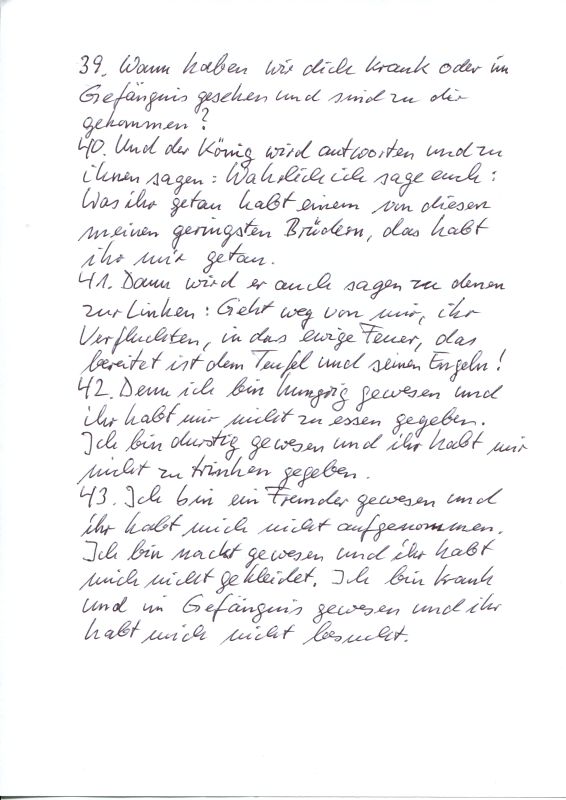 39. Wann haben wir dich krank oder im
Gefängnis gesehen und sind zu dir
gekommen?
40. Und der König wird antworten und zu
ihnen sagen: Wahrlich ich sage euch:
Was ihr getan habt einem von diesen
meinen geringsten Brüdern, das habt
ihr mir getan.
41. Dann wird er auch sagen zu denen
zur Linken: Geht weg von mir, ihr
Verfluchten, in das ewige Feuer, das
bereitet ist dem Teufel und seinen Engeln!
42. Denn ich bin hungrig gewesen und
ihr habt mir nicht zu essen gegeben.
Ich bin durstig gewesen und ihr habt mir
nicht zu trinken gegeben.
43. Ich bin ein Fremder gewesen und
ihr habt mich nicht aufgenommen.
Ich bin nackt gewesen und ihr habt
mich nicht gekleidet. Ich bin krank
und im Gefängnis gewesen und ihr
habt mich nicht besucht.